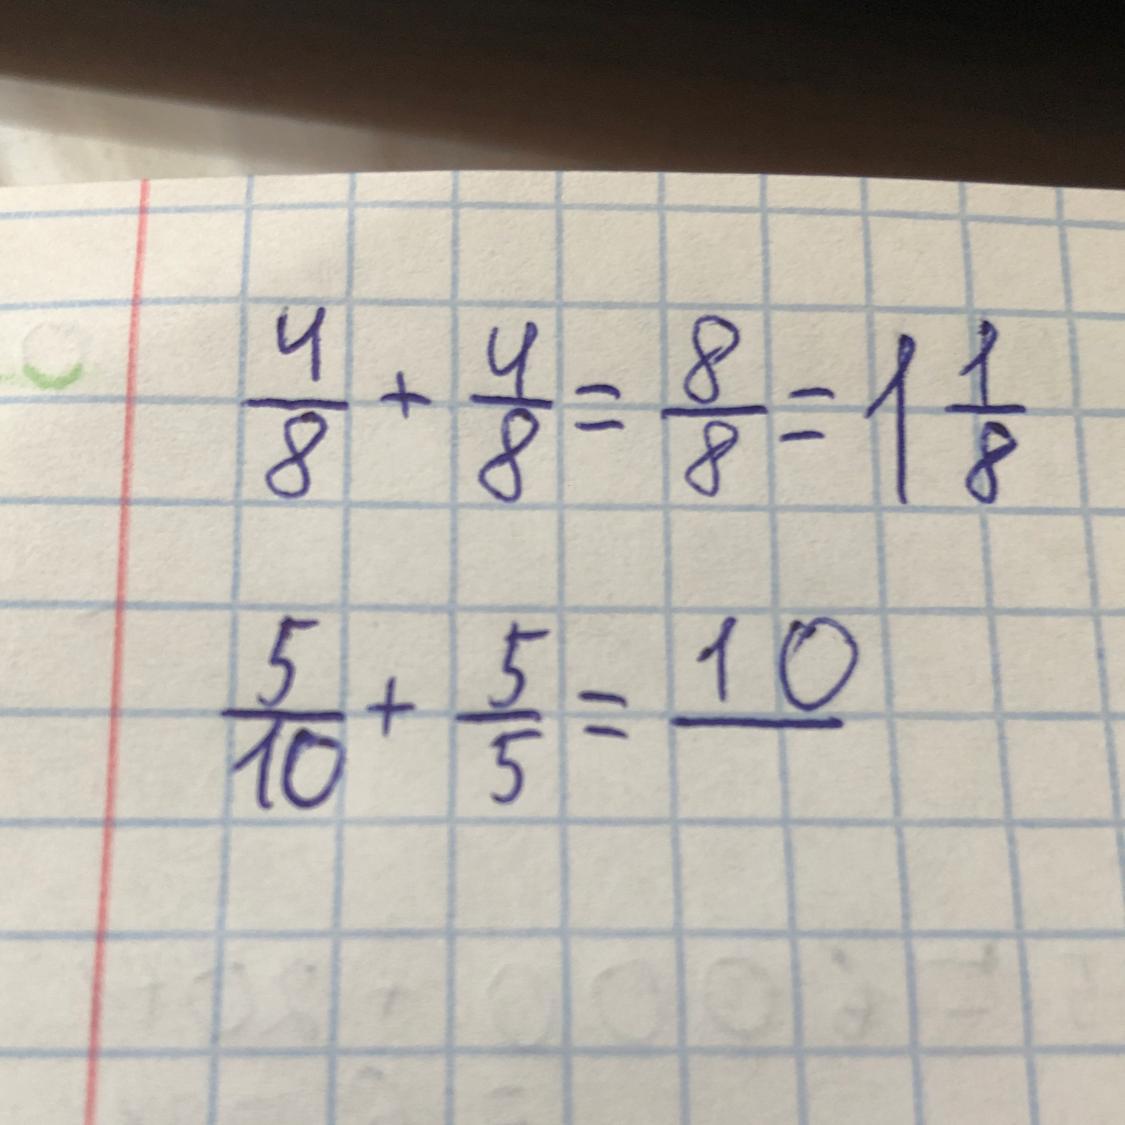 4/8 + 4/8 = 8/8 = 1 1/8
5/10 + 5/5 = 10/